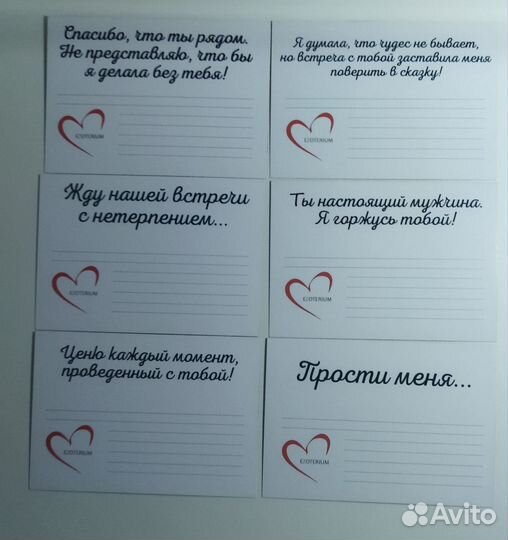 Спасибо, что ты рядом.
Не представляю, что бы
я делала без тебя!
EZOTERIUM
Я думала, что чудес не бывает,
но встреча с тобой заставила меня
поверить в сказку!
EZOTERIUM
Жду нашей встречи
с нетерпением...
EZOTERIUM
Ты настоящий мужчина.
Я горжусь тобой!
EZOTERIUM
Ценю каждый момент,
проведенный с тобой!
EZOTERIUM
Прости меня...
EZOTERIUM
Avito